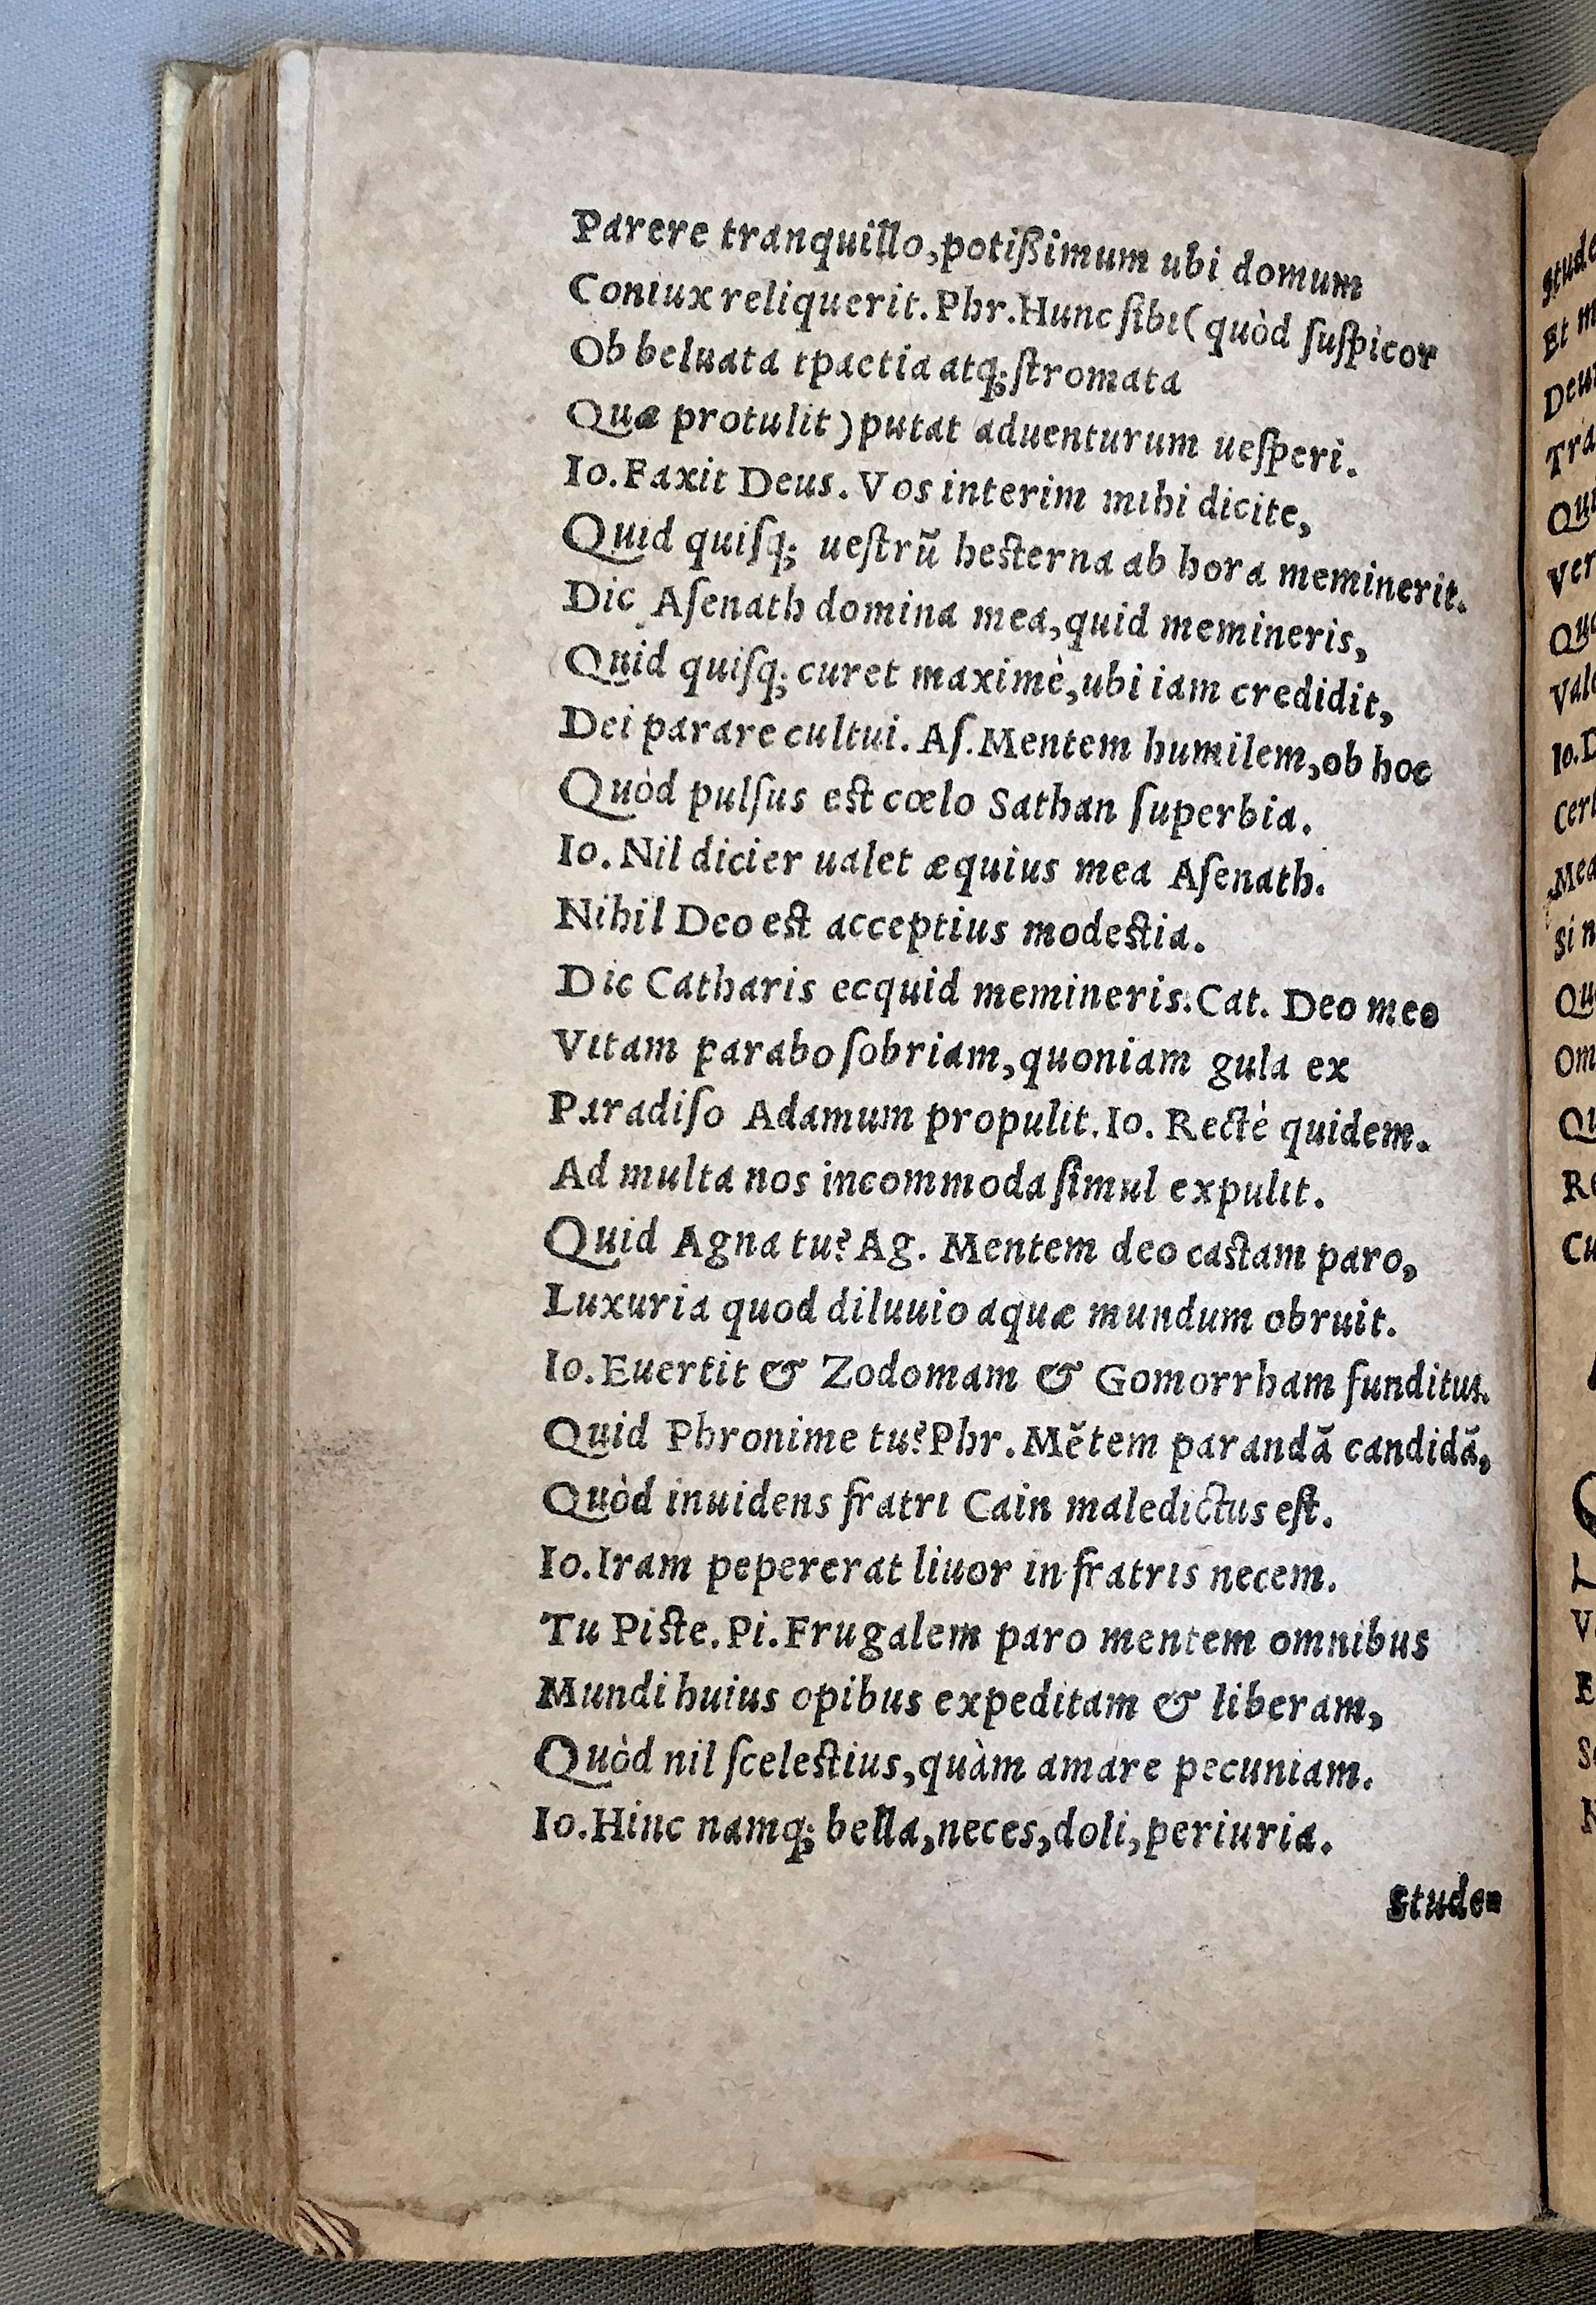 Parere tranquillo,potißimum ubi domum
Coniux reliquerit. Phr. Hunc ſibi ( quòd ſuſpicor
Ob beluata tpaetia atq; ſtromata
Quæ protulit ) putat aduenturum ueſperi.
Io. Faxit Deus. Vos interim mihi dicite,
Quid quiſq; ueſtrũ heſterna ab hora meminerit.
Dic Aſenath domina mea, quid memineris,
Quid quiſq; curet maximè, ubi iam credidit,
Dei parare cultui. Aſ. Mentem humilem, ob hoc
Quòd pulſus eſt cœlo Sathan ſuperbia.
Io. Nil dicier ualet æquius mea Aſenath.
Nihil Deo eſt acceptius modeſtia.
Dic Catharis ecquid memineris. Cat. Deo meo
Vitam parabo ſobriam, quoniam gula ex
Paradiſo Adamum propulit. Io. Rectè quidem.
Ad multa nos incommoda ſimul expulit.
Quid Agna tu? Ag. Mentem deo caſtam paro,
Luxuria quod diluuio aquæ mundum obruit.
Io. Euertit & Zodomam & Gomorrham funditus.
Quid Phronime tu? Phr. Mẽtem parandã candidã,
Quòd inuidens fratri Cain maledictus eſt.
Io. Iram pepererat liuor in fratris necem.
Tu Piſte. Pi. Frugalem paro mentem omnibus
Mundi huius opibus expeditam & liberam,
Quòd nil ſceleſtius, quàm amare pecuniam.
Io. Hinc namq; bella, neces, doli, periuria.
Stude=
Stude
Et m
Deu
Tra
Qui
Ver
Val
Io. D
Cert
Mea
Si n
Qu
Om
Qu
Re
Cu